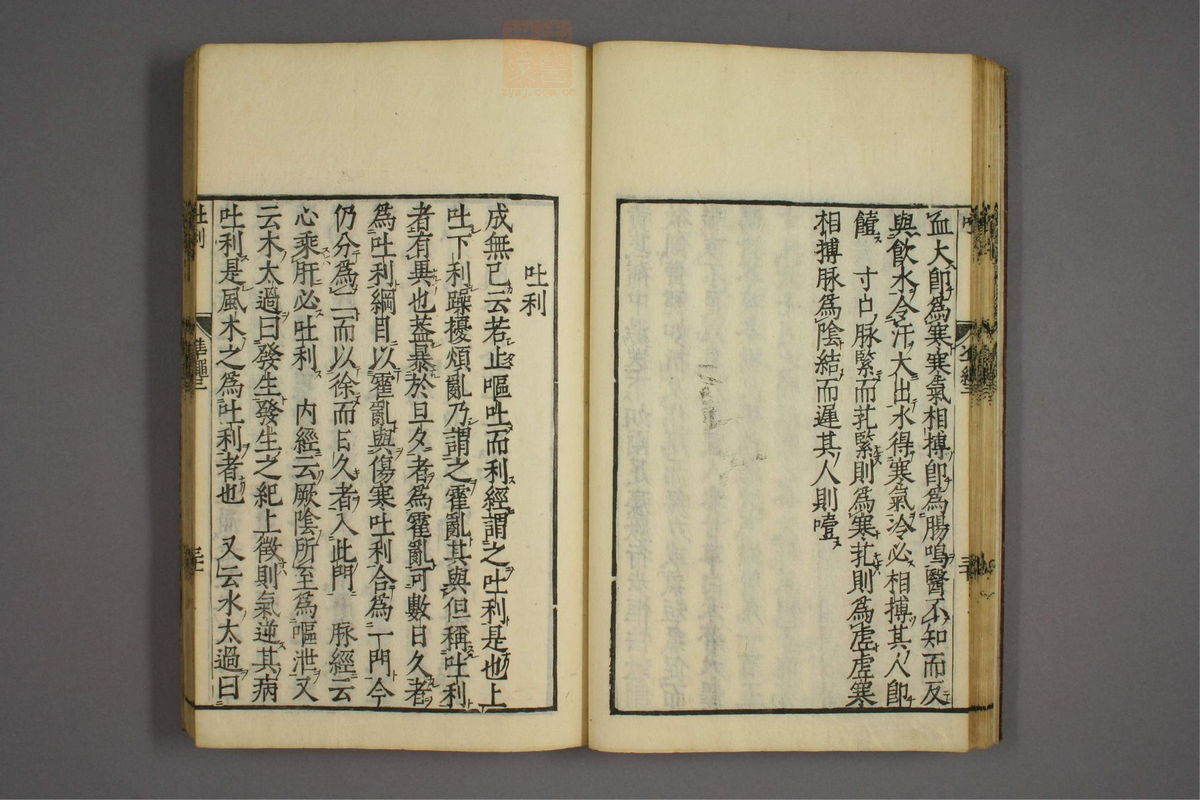 血大卽爲寒寒氣相搏卽爲腸鳴醫不知而反
與飲水令汗大出水得寒氣冷必相搏其人卽
䭇 寸口脉緊而芤緊則爲寒芤則爲虛虛寒
相搏脉爲陰結而遲其人則噎
吐利
成無已云若止嘔吐而利經謂之吐利是也上
吐下利躁擾煩亂乃謂之霍亂其與但稱吐利
者有異也蓋暴於旦夕者爲霍亂可數日久者
爲吐利綱目以霍亂與傷寒吐利合爲一門今
仍分爲二而以徐而日久者入此門 脉經云
心乘肝必吐利 內經云厥陰所至爲嘔泄又
云木太過曰發生發生之紀上徵則氣逆其病
吐利是風木之爲吐利者也 又云水太過曰
吐利